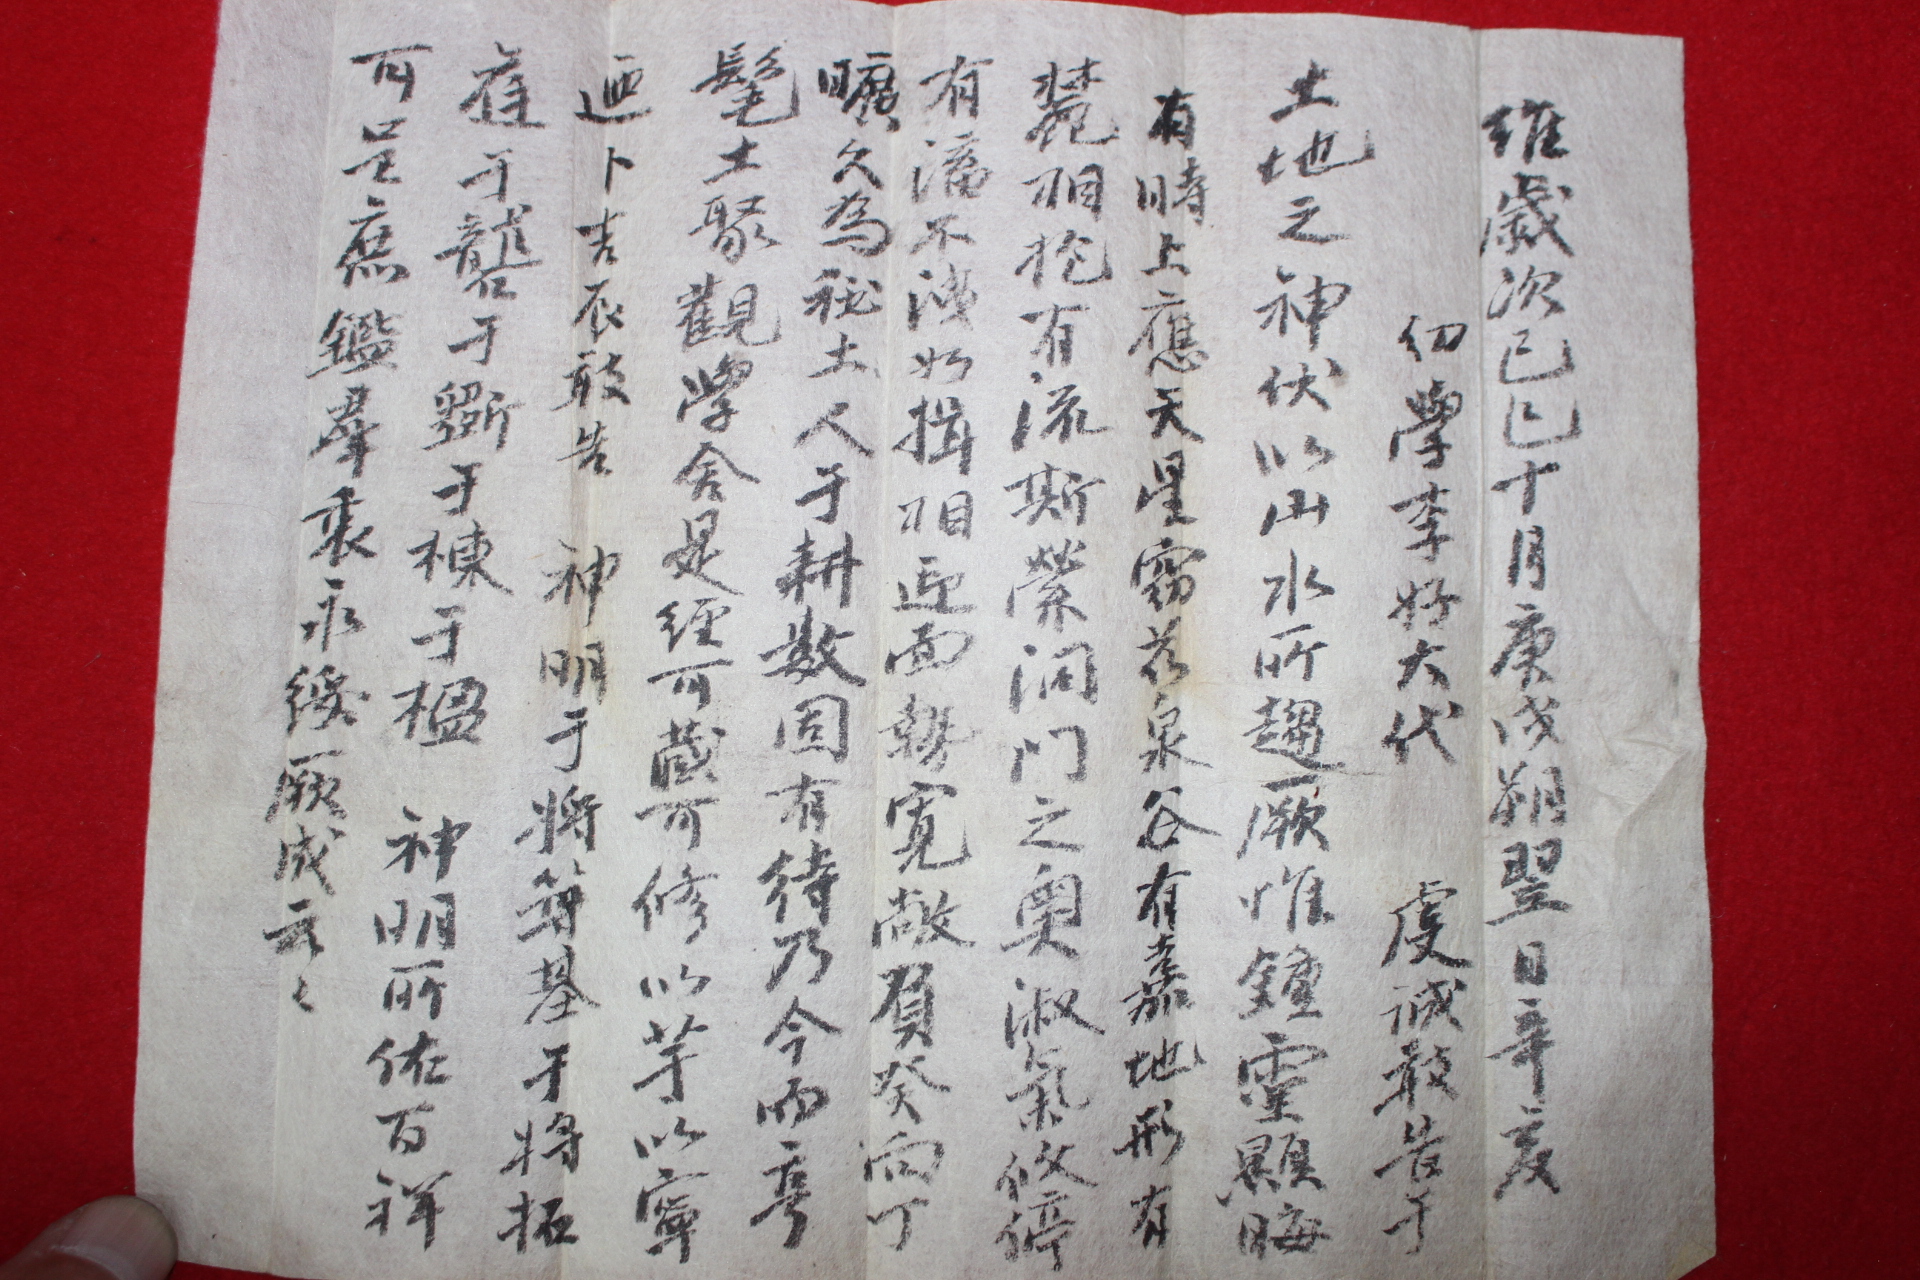 維歲次己巳十月庚戌朔翌日辛亥
幼學李好大代 虔誠敢告于
土地之神伏以山水所趨厥惟鍾靈顯晦
有時上應天星霧谷泉谷有嘉地形有
麓相抱有流斯縈洞門之奧淑氣攸停
有瀋不洩如揖相迎面勢寬敞負癸向丁
曠久為秘土人于耕數固有待乃今而亨
髦士聚觀學舍是經可藏可修以芋以寧
迺卜吉辰敢告 神明于將築基于將拓
于礱于斲于棟于楹 神明所佑百祥
可呈庶鑑羣衷永綏厥成云云